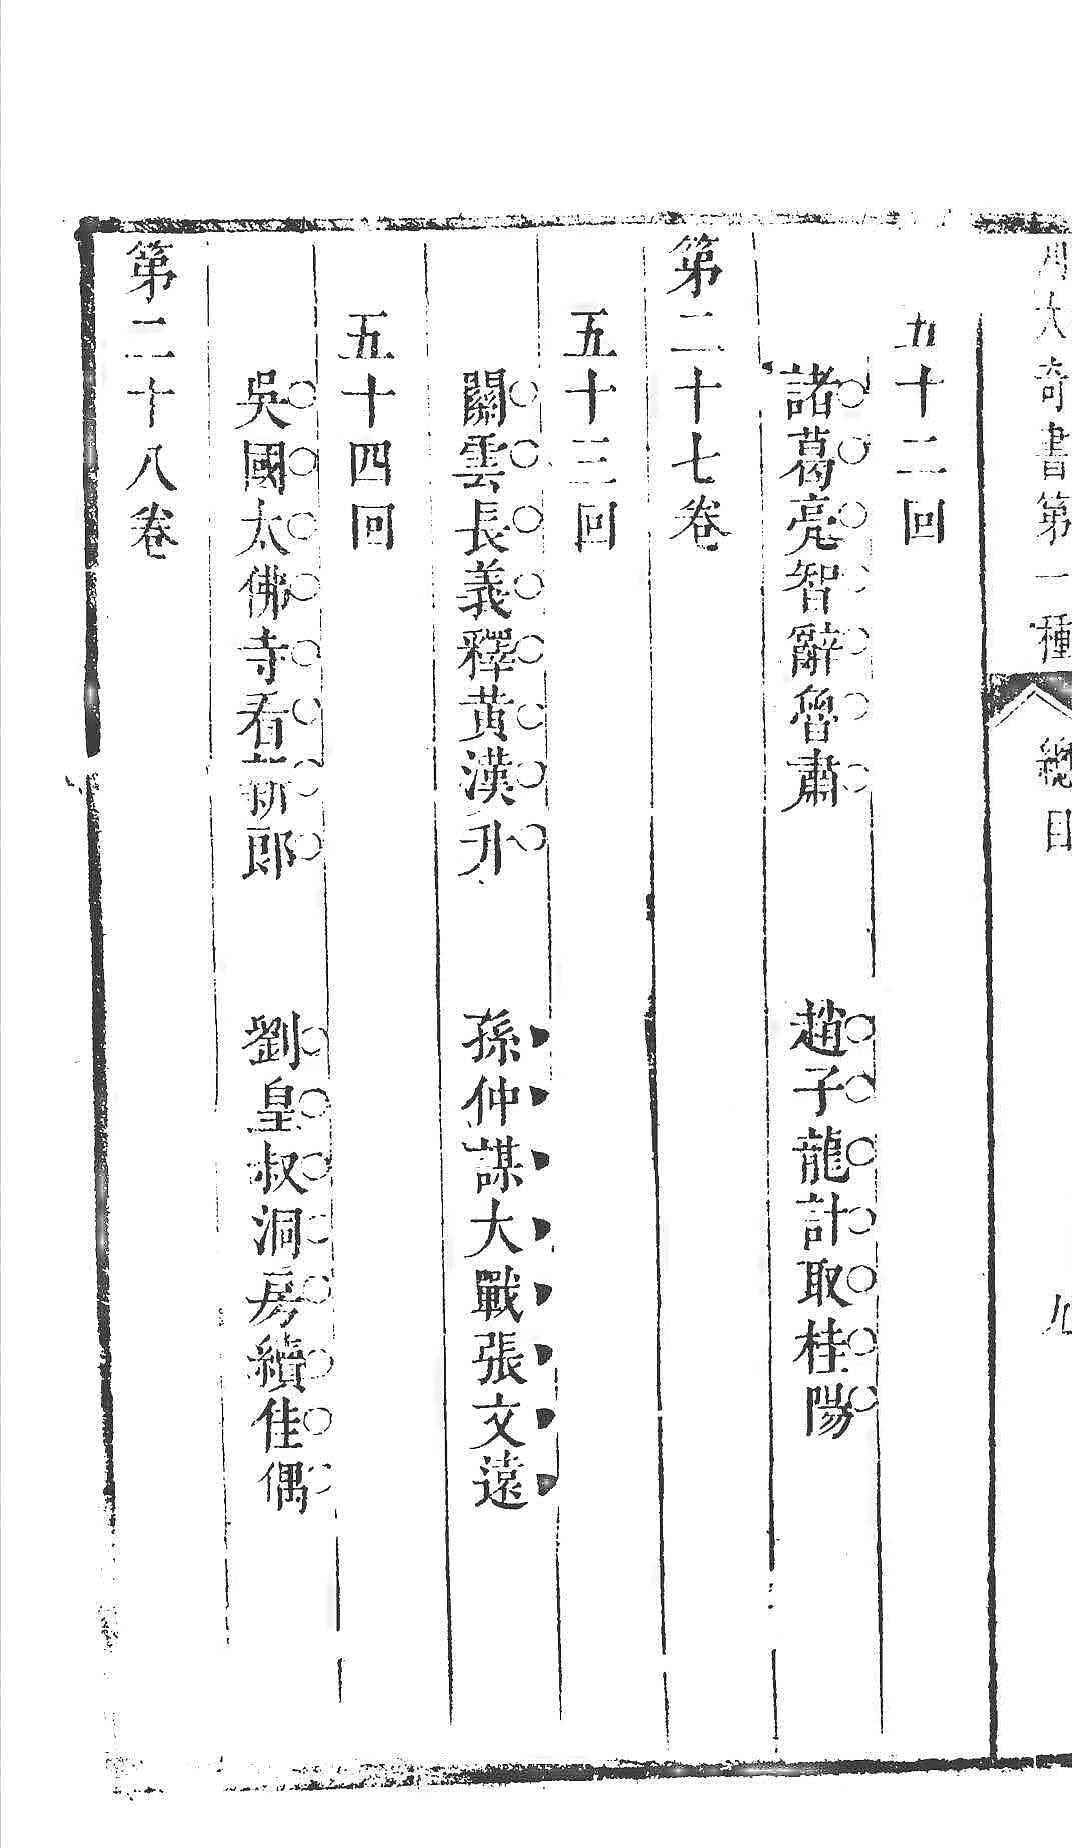 四大奇書第一種 總目 九
五十二回
諸葛亮智辭魯肅 趙子龍計取桂陽
第二十七卷
五十三回
關雲長義釋黃漢升 孫仲謀大戰張文遠
五十四回
吳國太佛寺看新郎 劉皇叔洞房續佳偶
第二十八卷